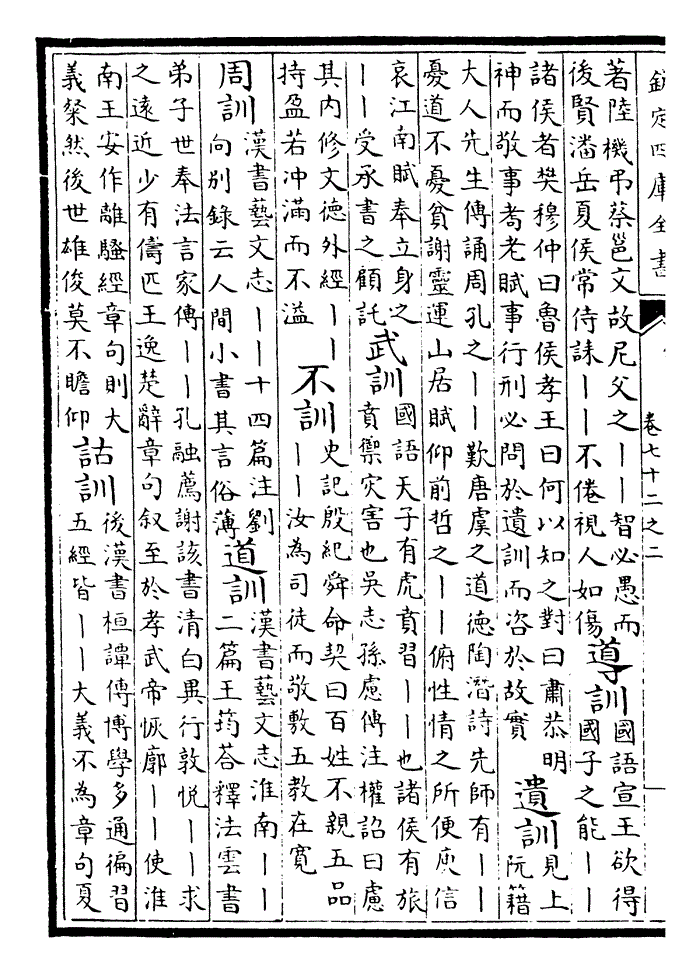 欽定四庫全書
卷七十二之二
著陸機弔蔡邕文故尼父之丨丨智必愚而
後賢潘岳夏侯常侍誄丨丨不倦視人如傷
導訓
國語宣王欲得
國子之能丨丨
諸侯者樊穆仲曰魯侯孝王曰何以知之對曰肅恭明
神而敬事耇老賦事行刑必問於遺訓而咨於故實
遺訓
見上
阮籍
大人先生傳誦周孔之丨丨歎唐虞之道德陶潛詩先師有丨丨
憂道不憂貧謝靈運山居賦仰前哲之丨丨俯性情之所便庾信
哀江南賦奉立身之
丨丨受承書之顧託
武訓
國語天子有虎賁習丨丨也諸侯有旅
賁禦灾害也吳志孫慮傳注權詔曰慮
其内修文德外經丨丨
持盈若冲滿而不溢
不訓
史記殷紀舜命契曰百姓不親五品
丨丨汝為司徒而敬敷五教在寬
周訓
漢書藝文志丨丨十四篇注劉
向别錄云人間小書其言俗薄
道訓
漢書藝文志淮南丨丨
二篇王筠荅釋法雲書
弟子世奉法言家傳丨丨孔融薦謝該書清白異行敦悦丨丨求
之遠近少有儔匹王逸楚辭章句叙至於孝武帝恢廓丨丨使淮
南王安作離騷經章句則大
義粲然後世雄俊莫不瞻仰
詁訓
後漢書桓譚傳博學多通徧習
五經皆丨丨大義不為章句夏